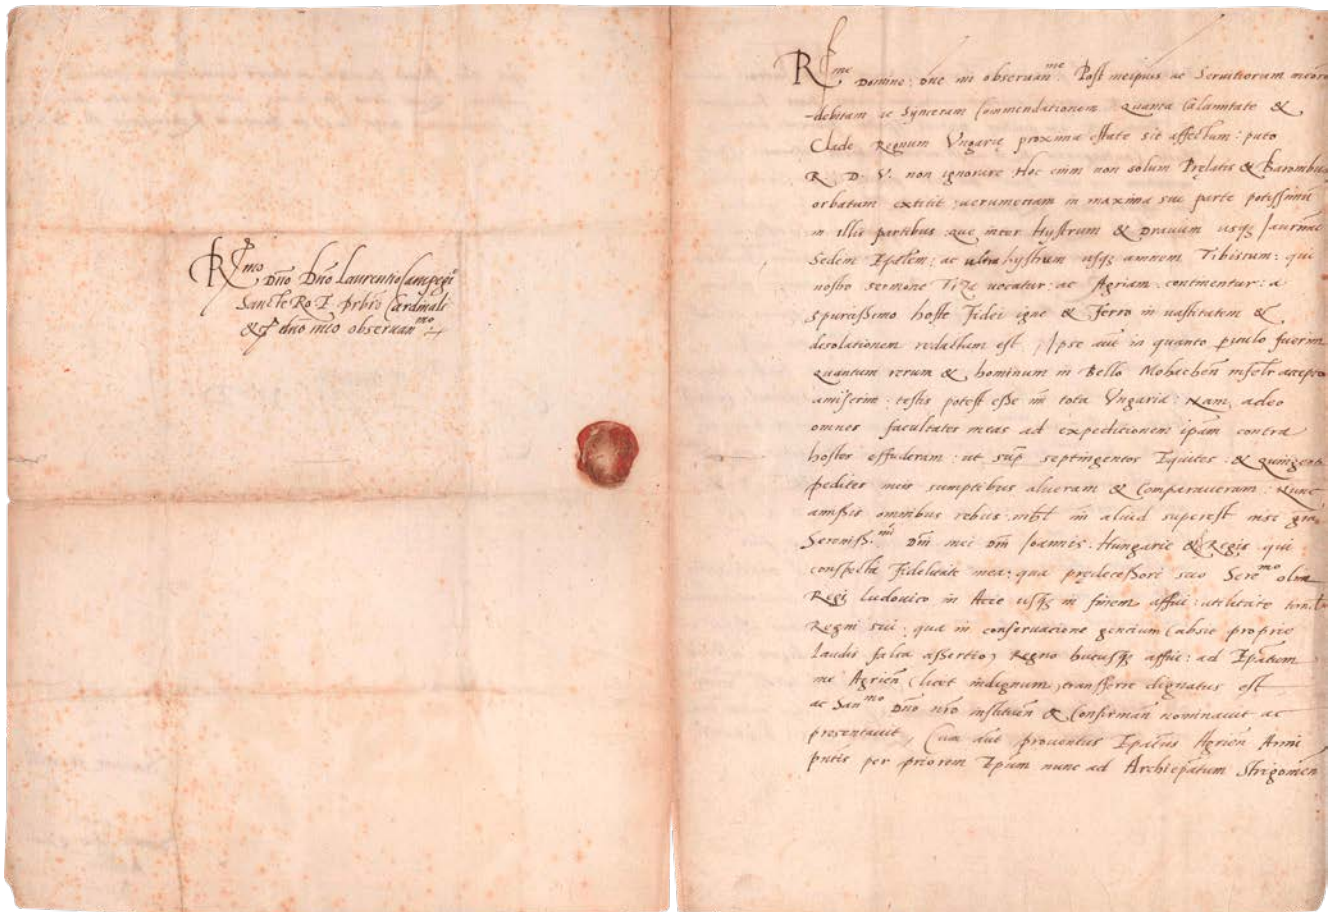 R mo
Dño Dño Laurentio Campegi
Sancte Ro. E. prbro Cardinali
&c dño meo observan mo
R me Domine: Dñe mi observan me Post meipius ac Servitiorum meorũ
debitam ac Synceram Commendationem Quanta Calamitate &
Clade Regnum Vngarię proxima estate sit affectum: puto
R. D. V. non ignorare Hoc enim non solum Pręlatis & Baronibus
orbatum extitit: uerumetiam in maxima sui parte potissimũ
in illis partibus: que inter Hystrum & Drauum usq; Jaurinũ
Sedem Ep̃alem: ac ultra hystrum usq; amnem Tibiscum: qui
nostro sermone Tize uocatur: ac Agriam: continentur: a
spurcissimo hoste Fidei igne & ferro in uastitatem &
desolationem redactum est. Ipse aũt in quanto piculo fuerim
Quantum rerum & hominum in Bello Mohacheñ infelr accepto
amiserim: testis potest esse mi tota Vngaria: Nam adeo
omnes facultates meas ad expeditionem ip̃am contra
hostes effuderam: ut sup septingentos Equites: & quingentos
pedites meis sumptibus alueram & Comparaueram: Nunc
amissis omnibus rebus nihil mi aliud superest nisi gr̃a
Sereniss. mi Dñi mei Dñi Joannis Hungarie &c Regis qui
conspecta Fidelitate mea: qua prędecessori suo Sere mo olim
Regi ludouico in Acie usq; in finem affui: utilitate
Regni sui: qua in conseruacione gencium (absit proprie
laudis falsa assertio) Regno hucusq; affui: ad Ep̃atum
me Agrieñ (licet indignum) transferre dignatus est
ac San mo Dño nr̃o instituẽn & Confirmañ nominauit ac
presentauit, Cum aũt prouentus Ep̃atus Agrieñ Anni
pñtis per priorem Ep̃um nunc ad Archiep̃atum Strigonieñ